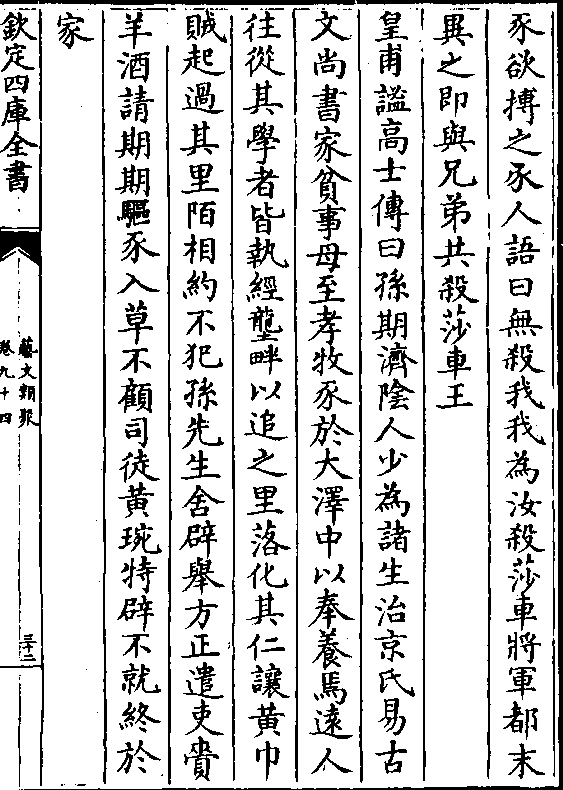 豕欲搏之豕人語曰無殺我我為汝殺莎車將軍都末
異之即與兄弟共殺莎車王
皇甫謐高士傳曰孫期濟陰人少為諸生治京氏易古
文尚書家貧事母至孝牧豕於大澤中以奉養焉遠人
往從其學者皆執經壟畔以追之里落化其仁讓黃巾
賊起過其里陌相約不犯孫先生舍辟舉方正遣吏賫
羊酒請期期驅豕入草不顧司徒黃琬特辟不就終於
家
欽定四庫全書
藝文類聚
卷九十四
三十二